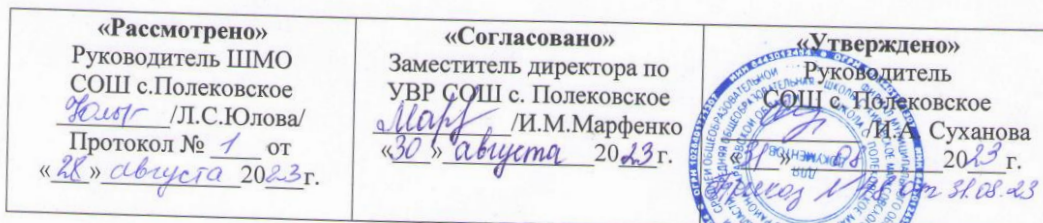 «Рассмотрено»
Руководитель ШМО
СОШ с.Полековское
/Л.С.Юлова/
Протокол № 1 от
«28» августа 2023г.
«Согласовано»
Заместитель директора по
УВР СОШ с. Полековское
/И.М.Марфенко
«30» августа 2023г.
«Утверждено»
Руководитель
СОШ с. Полековское
/И.А. Суханова
«31» 08 2023г.
Приказ № от 31.08.23
ДЛЯ
ДОКУМЕНТОВ